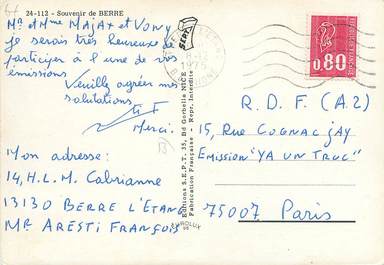 24-112 - Souvenir de BERRE
Mr et Mme Majax et Vony
je serais très heureux de
participer à l'une de vos
émissions.
Veuillez agréer mes
salutations.
Merci.
Mon adresse:
14, H.L.M. Cabrianne
13130 BERRE L'ETANG
Mr ARESTI FRANÇOIS
Editions S.E.P.T. 35, Bd Gorbella NICE
Fabrication Française Repr. Interdite
SEPT
1975
0,80
R.D.F. (A.2)
15, Rue COGNACQ JAY
EMISSION "YA UN TRUC"
75007 Paris